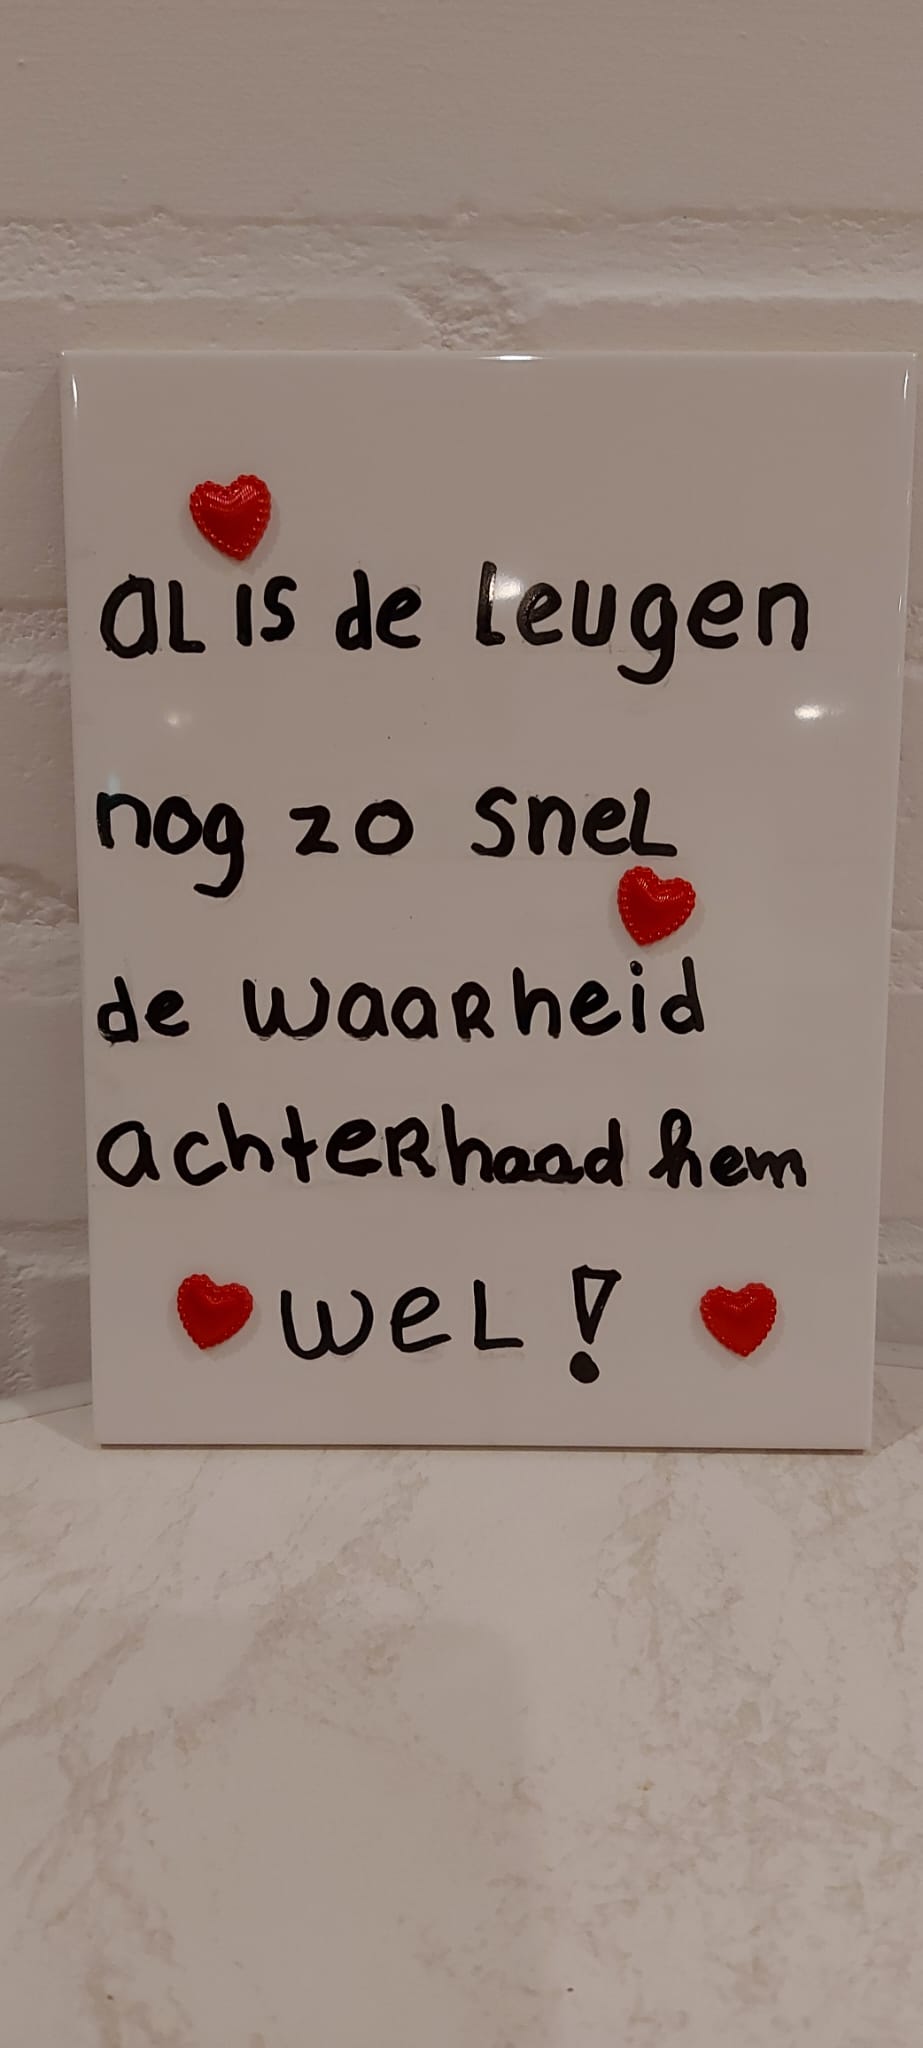 al is de leugen
nog zo snel
de waarheid
achterhaad hem
wel!